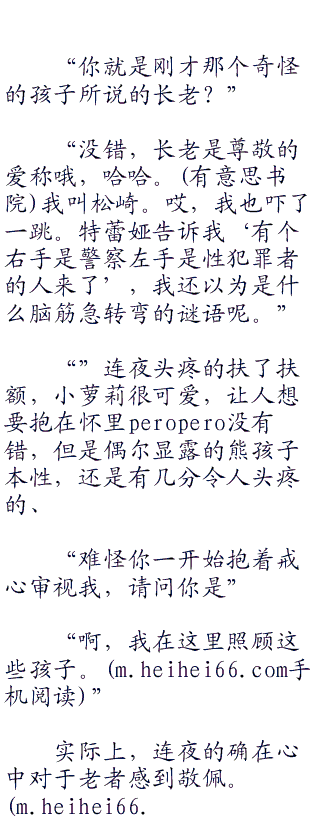 “你就是刚才那个奇怪
的孩子所说的长老？”
“没错，长老是尊敬的
爱称哦，哈哈。(有意思书
院)我叫松崎。哎，我也吓了
一跳。特蕾娅告诉我‘有个
右手是警察左手是性犯罪者
的人来了’，我还以为是什
么脑筋急转弯的谜语呢。”
“”连夜头疼的扶了扶
额，小萝莉很可爱，让人想
要抱在怀里peropero没有
错，但是偶尔显露的熊孩子
本性，还是有几分令人头疼
的、
“难怪你一开始抱着戒
心审视我，请问你是”
“啊，我在这里照顾这
些孩子。(m.heihei66.com手
机阅读)”
实际上，连夜的确在心
中对于老者感到敬佩。
(m.heihei66.